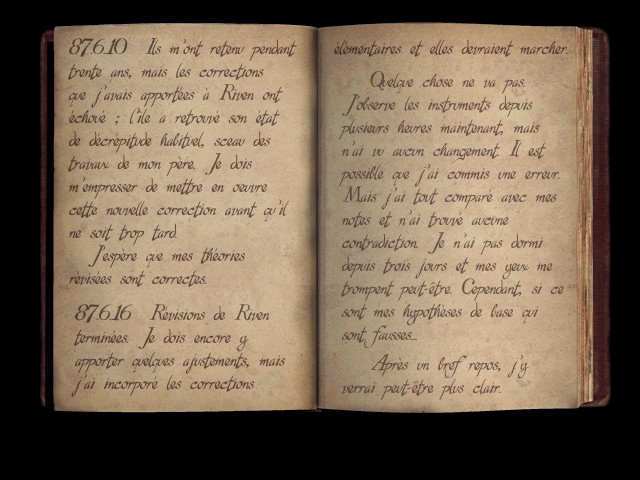 87.6.10 Ils m'ont retenu pendant
trente ans, mais les corrections
que j'avais apportées à Riven ont
échoué ; l'île a retrouvé son état
de décrépitude habituel, sceau des
travaux de mon père. Je dois
m'empresser de mettre en oeuvre
cette nouvelle correction avant qu'il
ne soit trop tard.
J'espère que mes théories
révisées sont correctes.
87.6.16 Révisions de Riven
terminées. Je dois encore y
apporter quelques ajustements, mais
j'ai incorporé les corrections
élémentaires et elles devraient marcher.
Quelque chose ne va pas.
J'observe les instruments depuis
plusieurs heures maintenant, mais
n'ai vu aucun changement. Il est
possible que j'ai commis une erreur.
Mais j'ai tout comparé avec mes
notes et n'ai trouvé aucune
contradiction. Je n'ai pas dormi
depuis trois jours et mes yeux me
trompent peut-être. Cependant, si ce
sont mes hypothèses de base qui
sont fausses...
Après un bref repos, j'y
verrai peut-être plus clair.